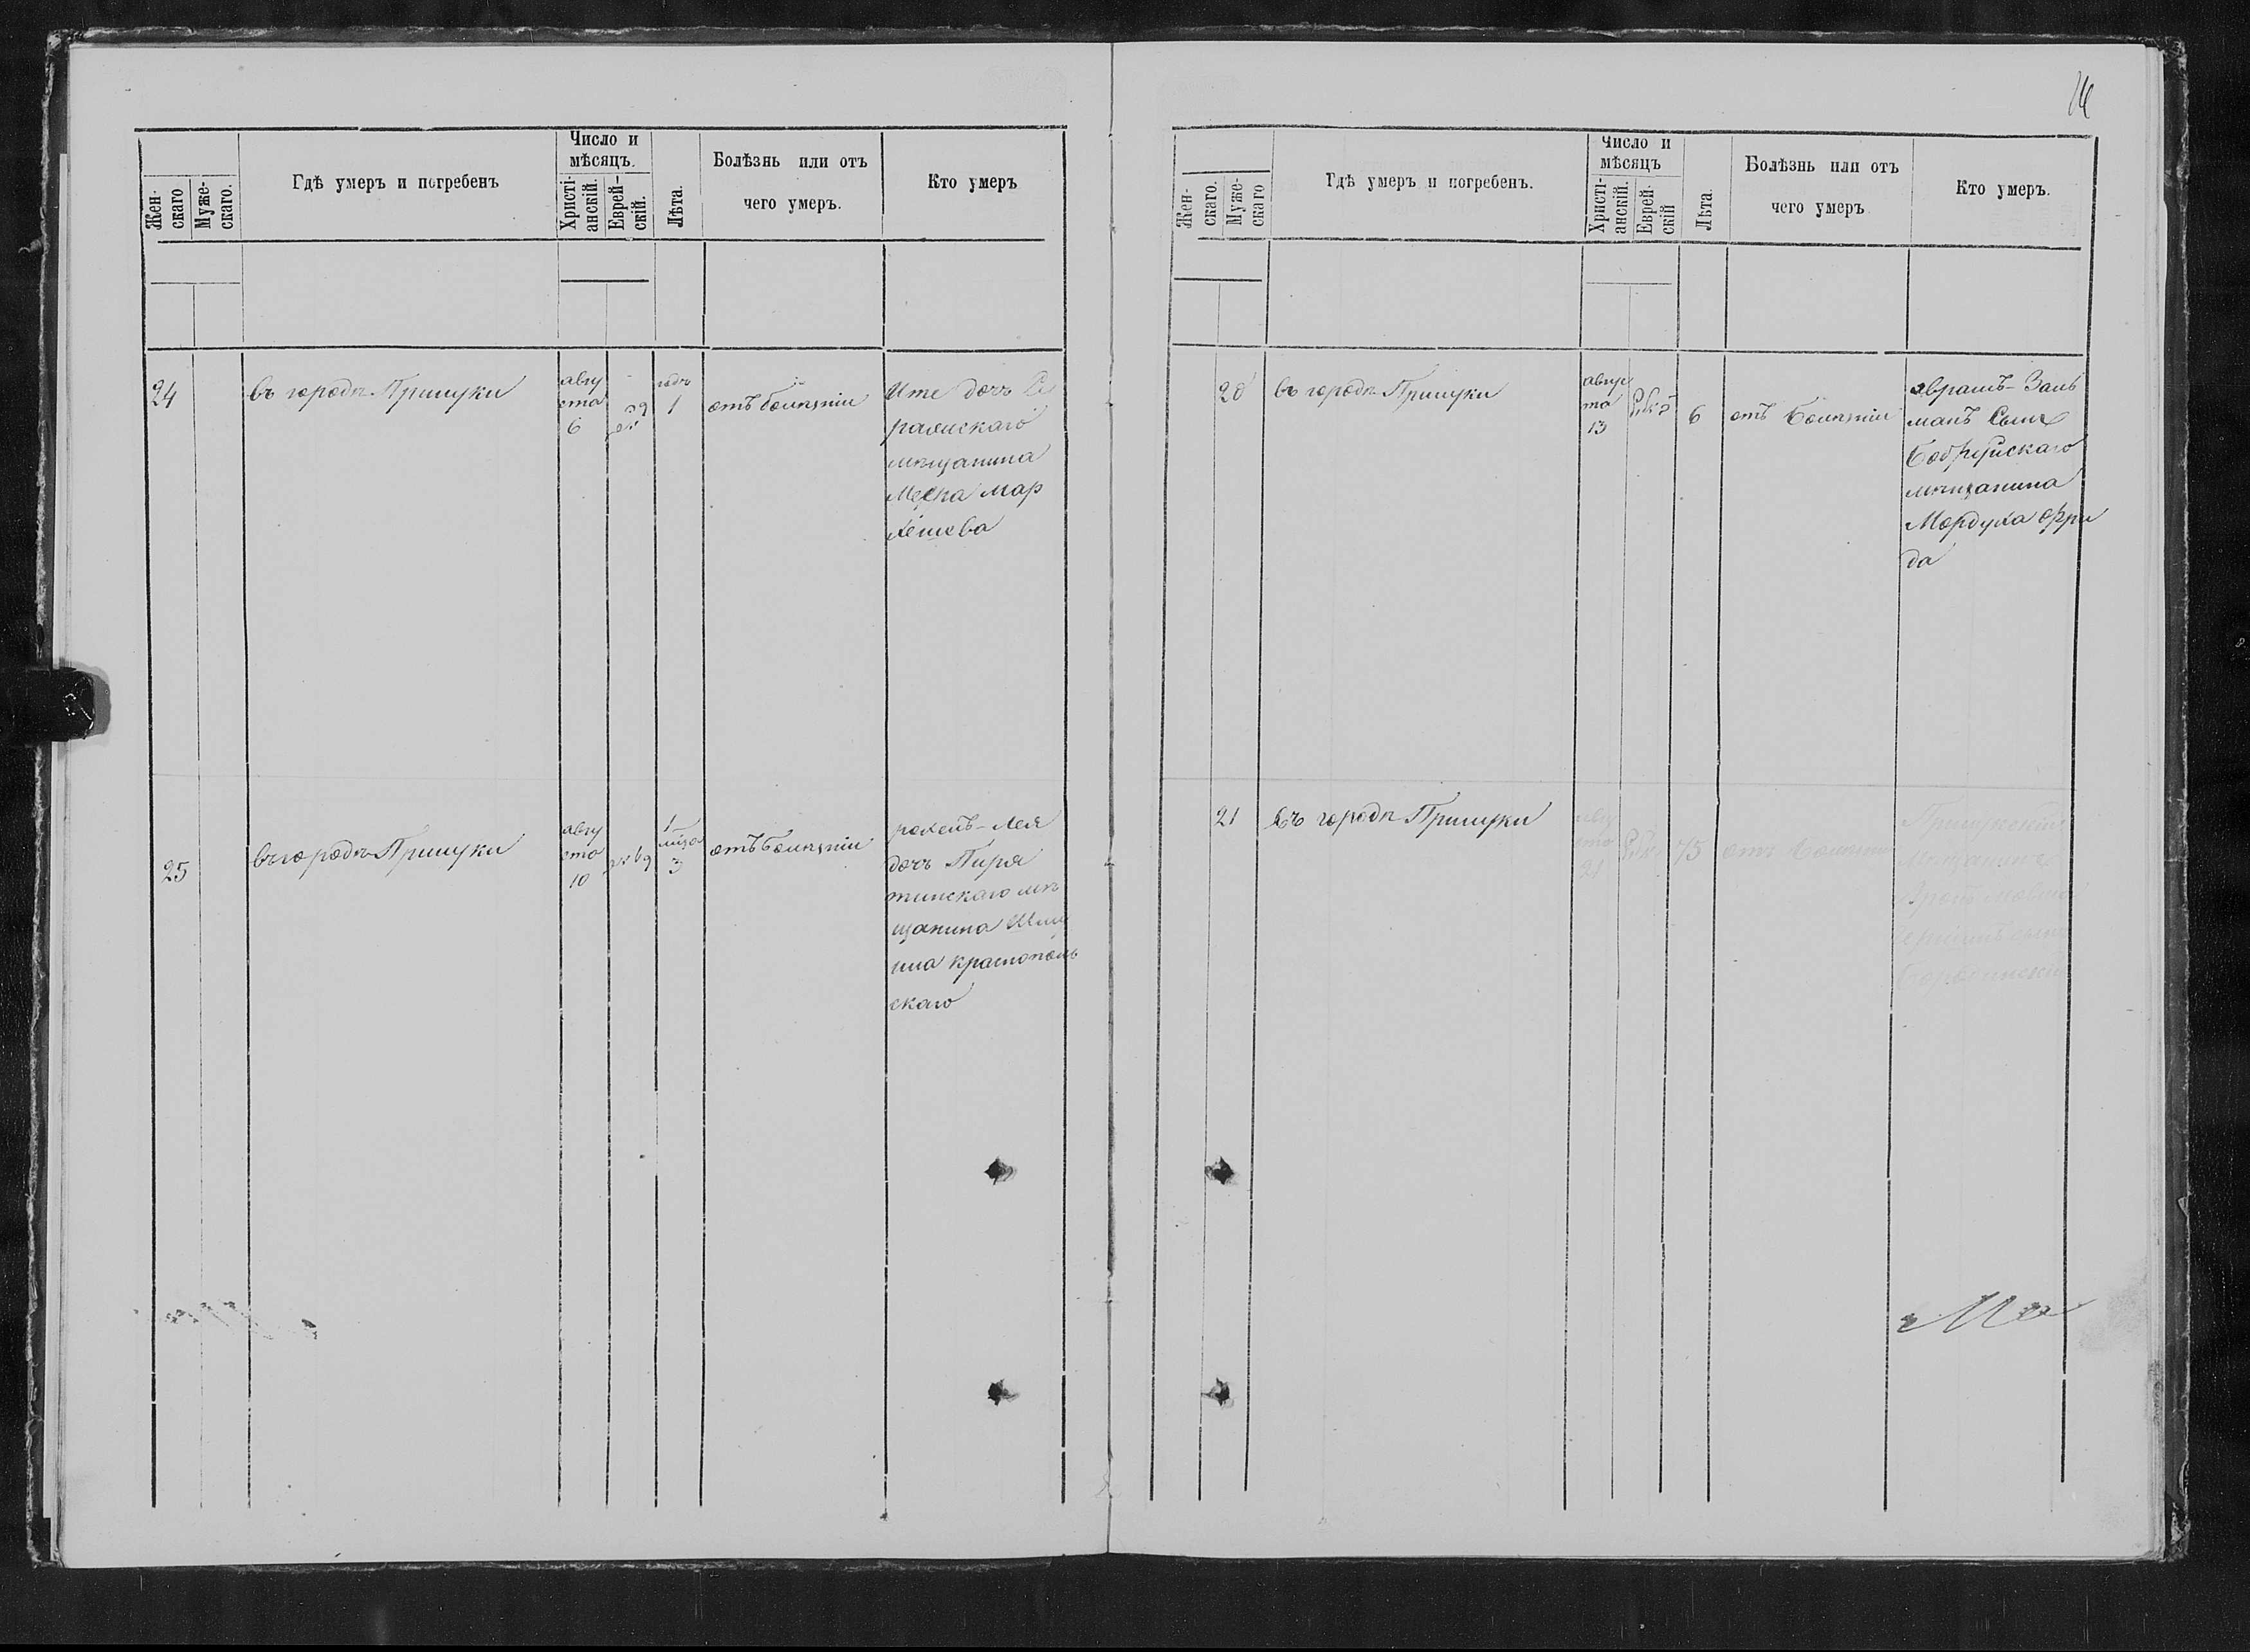 14
Жен-
скаго
Муже-
скаго.
Гдѣ умеръ и погребенъ
Число и
мѣсяцъ.
Христі-
анскій.
Еврей-
скій.
Лѣта.
Болѣзнь или отъ
чего умеръ.
Кто умеръ
24
въ городѣ Прилуки
авгу
ста
6
годъ
1
отъ болѣзніи
Ите дочь
мѣщанина
Меера Мар
25
въ городѣ Прилуки
авгу
ста
10
1
мѣся
3
отъ болѣзніи
рохель-Лея
дочь Пиря
тинскаго мѣ
щанина Шлі
ома Краснополь
скаго
Жен-
скаго.
Муже-
скаго
Гдѣ умеръ и погребенъ.
Число и
мѣсяцъ
Христі-
анскій.
Еврей-
скій
Лѣта.
Болѣзнь или отъ
чего умеръ
Кто умеръ.
20
въ городѣ Прилуки
авгус
та
13
6
отъ болѣзніи
аврамъ-Заль
манъ Сынъ
Бобруйскаго
мѣщанина
Мордуха Фри
да
21
въ городѣ Прилуки
авгу
ста
21
75
отъ болѣзни
Прилукскій
Мѣщанинъ